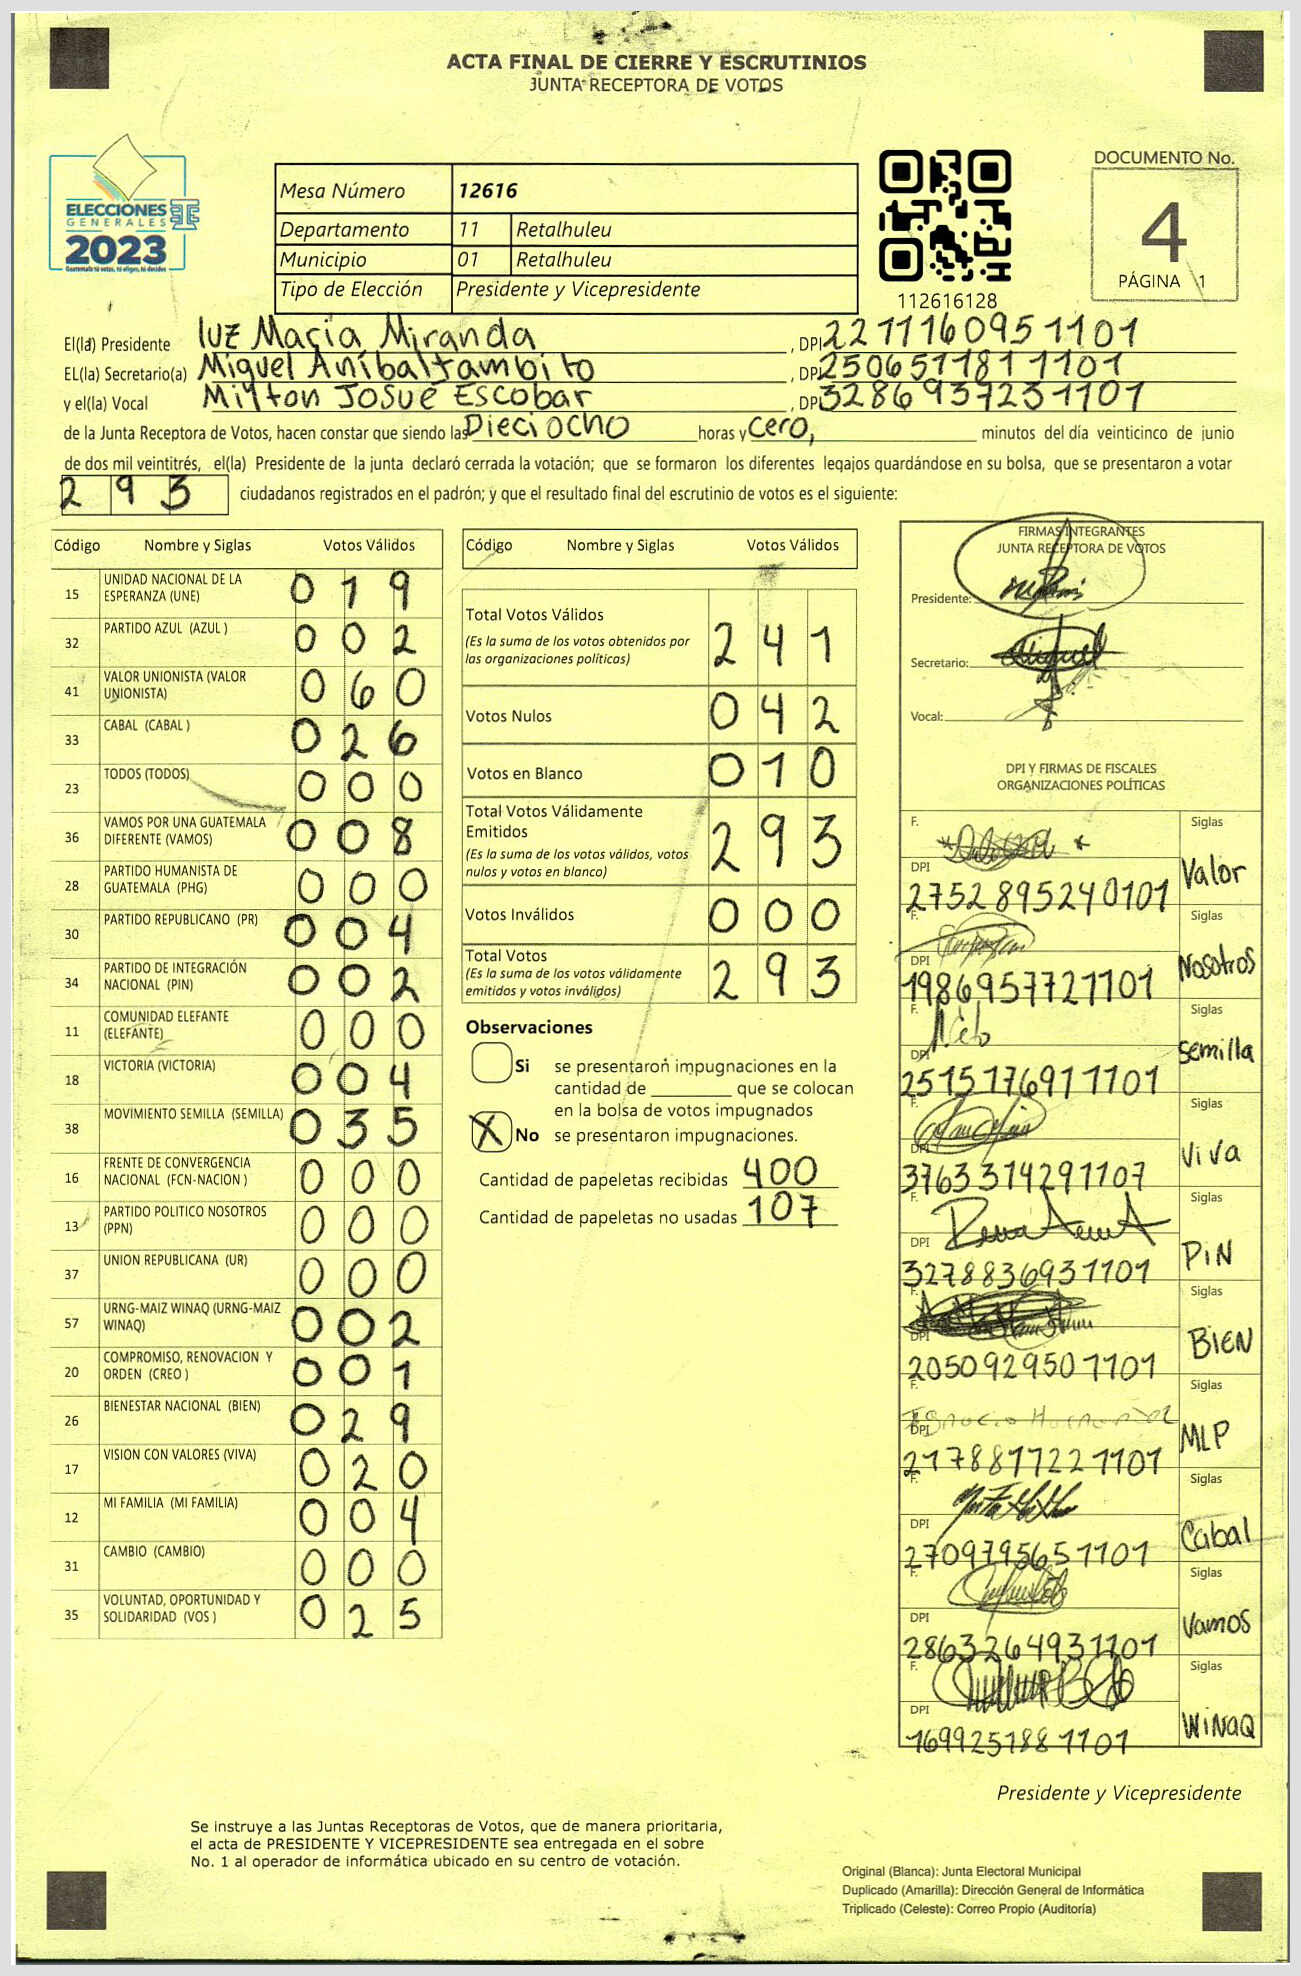 ACTA FINAL DE CIERRE Y ESCRUTINIOS
JUNTA RECEPTORA DE VOTOS
ELECCIONES
GENERALES
2023
Guatemala tú votas, tú eliges, tú decides
Mesa Número 12616
Departamento 11 Retalhuleu
Municipio 01 Retalhuleu
Tipo de Elección Presidente y Vicepresidente
112616128
DOCUMENTO No.
4
PÁGINA 1
El(la) Presidente luz Maria Miranda, DPI 2211160951101
EL(la) Secretario(a) Miguel Aníbal Tambito, DPI 2506511811101
y el(la) Vocal Milton Josué Escobar, DPI 3286937231101
de la Junta Receptora de Votos, hacen constar que siendo las Dieciocho horas y cero, minutos del día veinticinco de junio
de dos mil veintitrés, el(la) Presidente de la junta declaró cerrada la votación; que se formaron los diferentes legajos guardándose en su bolsa, que se presentaron a votar
293 ciudadanos registrados en el padrón; y que el resultado final del escrutinio de votos es el siguiente:
Código Nombre y Siglas Votos Válidos
15 UNIDAD NACIONAL DE LA ESPERANZA (UNE) 019
32 PARTIDO AZUL (AZUL ) 002
41 VALOR UNIONISTA (VALOR UNIONISTA) 060
33 CABAL (CABAL ) 026
23 TODOS (TODOS) 000
36 VAMOS POR UNA GUATEMALA DIFERENTE (VAMOS) 008
28 PARTIDO HUMANISTA DE GUATEMALA (PHG) 000
30 PARTIDO REPUBLICANO (PR) 004
34 PARTIDO DE INTEGRACIÓN NACIONAL (PIN) 002
11 COMUNIDAD ELEFANTE (ELEFANTE) 000
18 VICTORIA (VICTORIA) 004
38 MOVIMIENTO SEMILLA (SEMILLA) 035
16 FRENTE DE CONVERGENCIA NACIONAL (FCN-NACION ) 000
13 PARTIDO POLITICO NOSOTROS (PPN) 000
37 UNION REPUBLICANA (UR) 000
57 URNG-MAIZ WINAQ (URNG-MAIZ WINAQ) 002
20 COMPROMISO, RENOVACION Y ORDEN (CREO ) 001
26 BIENESTAR NACIONAL (BIEN) 029
17 VISION CON VALORES (VIVA) 020
12 MI FAMILIA (MI FAMILIA) 004
31 CAMBIO (CAMBIO) 000
35 VOLUNTAD, OPORTUNIDAD Y SOLIDARIDAD (VOS ) 025
Código Nombre y Siglas Votos Válidos
Total Votos Válidos 241
(Es la suma de los votos obtenidos por
las organizaciones políticas)
Votos Nulos 042
Votos en Blanco 010
Total Votos Válidamente
Emitidos 293
(Es la suma de los votos válidos, votos
nulos y votos en blanco)
Votos Inválidos 000
Total Votos 293
(Es la suma de los votos válidamente
emitidos y votos inválidos)
Observaciones
Si se presentaron impugnaciones en la
cantidad de ________ que se colocan
en la bolsa de votos impugnados
X No se presentaron impugnaciones.
Cantidad de papeletas recibidas 400
Cantidad de papeletas no usadas 107
FIRMAS INTEGRANTES
JUNTA RECEPTORA DE VOTOS
Presidente:
Secretario:
Vocal:
DPI Y FIRMAS DE FISCALES
ORGANIZACIONES POLÍTICAS
F. Siglas
DPI 2752895240101 Valor
F. Siglas
DPI 1986957721101 Nosotros
F. Siglas
DPI 2515176911101 Semilla
F. Siglas
DPI 3763314291107 Viva
F. Siglas
DPI 3278836931101 PiN
F. Siglas
DPI 2050929501101 BIEN
F. Siglas
DPI 2178817221101 MLP
F. Siglas
DPI 2709795651101 Cabal
F. Siglas
DPI 2863264931101 Vamos
F. Siglas
DPI 1699251881101 WiNAQ
Presidente y Vicepresidente
Se instruye a las Juntas Receptoras de Votos, que de manera prioritaria,
el acta de PRESIDENTE Y VICEPRESIDENTE sea entregada en el sobre
No. 1 al operador de informática ubicado en su centro de votación.
Original (Blanca): Junta Electoral Municipal
Duplicado (Amarilla): Dirección General de Informática
Triplicado (Celeste): Correo Propio (Auditoría)